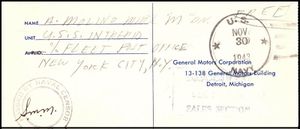 FREE
NAME A. MOLINO
UNIT U.S.S. INTREPID
A.P.O. % FLEET POST OFFICE
NEW YORK CITY, N.Y.
U.S.
NOV
30
NAVY
General Motors Corporation
13-138 General Motors Building
Detroit, Michigan
SALES SECTION
NAVAL CENSOR